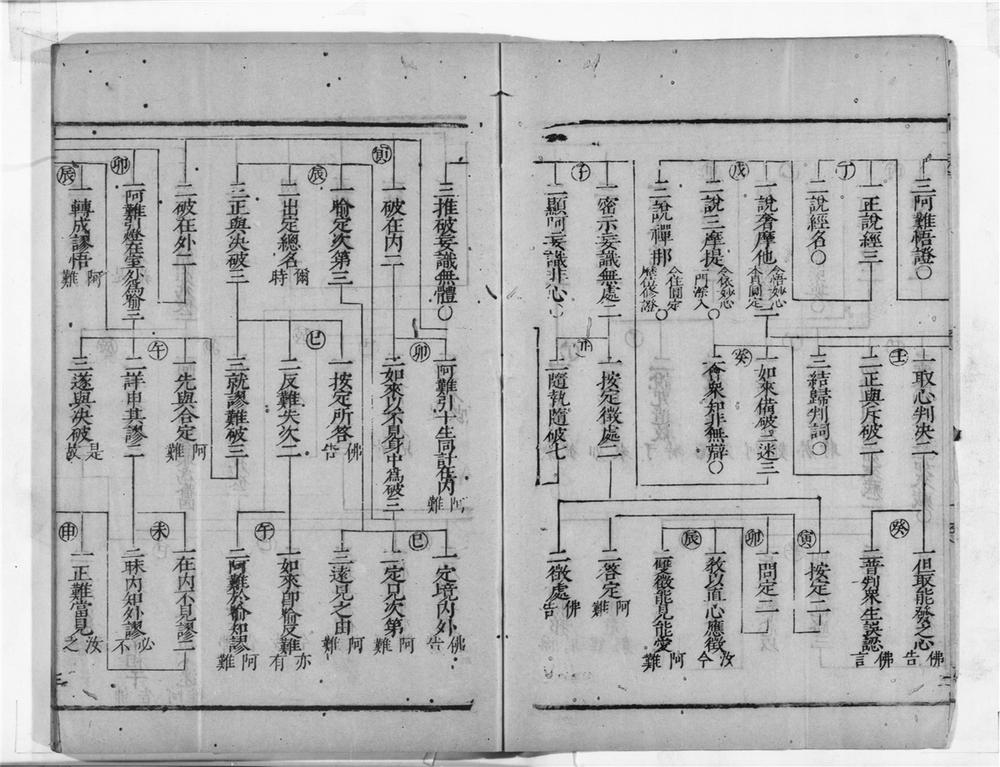 三阿難悟證〇
丁
一正說經三
二說經名〇
戊
一說奢摩他
二說三摩提
三說禪那
子
一密示妄識無處二
二顯
妄識非心〇
壬
一取心判決二
二正與斥破二
三結歸判詞〇
癸
一如來備破三迷三
二會眾知非無辯〇
丑
一按定徵處二
二隨執隨破七
癸
一但取能發之心
佛告
二普判眾生誤認
佛言
寅
一按定二
二徵處
佛告
卯
一問定二
二答定
阿難
辰
一教以直心應徵
汝今
二確徵能見能愛
阿難
三推破妄識無體〇
寅
一破在內二
辰
一喻定次第三
二出定總名
爾時
三正與決破三
二破在外二
卯
二阿難引燈在室外為喻三
辰
一轉成謬悟
阿難
卯
一阿難引十生同計在內
阿難
二如來以不見身中為破三
巳
一按定所答
佛告
二反難失次二
三就謬難破三
午
一先與合定
阿難
二詳申其謬二
三遂與決破
是故
巳
一定境內外
佛告
二定見次第
阿難
三遠見之由
阿難
午
一如來即喻反難
亦有
二阿難於喻知謬
阿難
未
一在內不見謬二
二昧內知外謬
必不
申
一正難當見
汝之